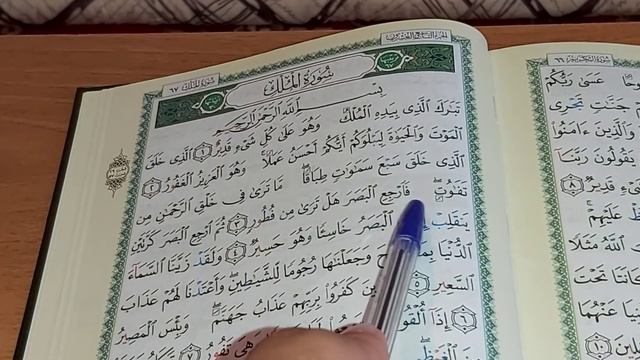 الجزء التاسع والعشرون
سورة الملك ٦٧
سُورَةُ المُلْكِ
بِسْمِ اللَّهِ الرَّحْمَٰنِ الرَّحِيمِ
تَبَٰرَكَ ٱلَّذِى بِيَدِهِ ٱلْمُلْكُ وَهُوَ عَلَىٰ كُلِّ شَىْءٍ قَدِيرٌ ١ ٱلَّذِى خَلَقَ
ٱلْمَوْتَ وَٱلْحَيَوٰةَ لِيَبْلُوَكُمْ أَيُّكُمْ أَحْسَنُ عَمَلًا وَهُوَ ٱلْعَزِيزُ ٱلْغَفُورُ ٢
ٱلَّذِى خَلَقَ سَبْعَ سَمَٰوَٰتٍ طِبَاقًا مَّا تَرَىٰ فِى خَلْقِ ٱلرَّحْمَٰنِ مِن
تَفَٰوُتٍ فَٱرْجِعِ ٱلْبَصَرَ هَلْ تَرَىٰ مِن فُطُورٍ ٣ ثُمَّ ٱرْجِعِ ٱلْبَصَرَ كَرَّتَيْنِ
يَنقَلِبْ ٱلْبَصَرُ خَاسِئًا وَهُوَ حَسِيرٌ ٤ وَلَقَدْ زَيَّنَّا ٱلسَّمَآءَ
ٱلدُّنْيَا وَجَعَلْنَٰهَا رُجُومًا لِّلشَّيَٰطِينِ وَأَعْتَدْنَا لَهُمْ عَذَابَ
ٱلسَّعِيرِ ٥ كَفَرُوا۟ بِرَبِّهِمْ عَذَابُ جَهَنَّمَ وَبِئْسَ ٱلْمَصِيرُ
٦ إِذَآ وَهِىَ تَفُورُ ٧
٦٦
عَسَىٰ رَبُّكُمْ
جَنَّٰتٍ تَجْرِى
وَٱلَّذِينَ ءَامَنُوا۟
يَقُولُونَ رَبَّنَآ
قَدِيرٌ ٨
عَلَيْهِمْ
ٱللَّهُ مَثَلًا
كَانَتَا تَحْتَ
عَنْهُمَا
١٠